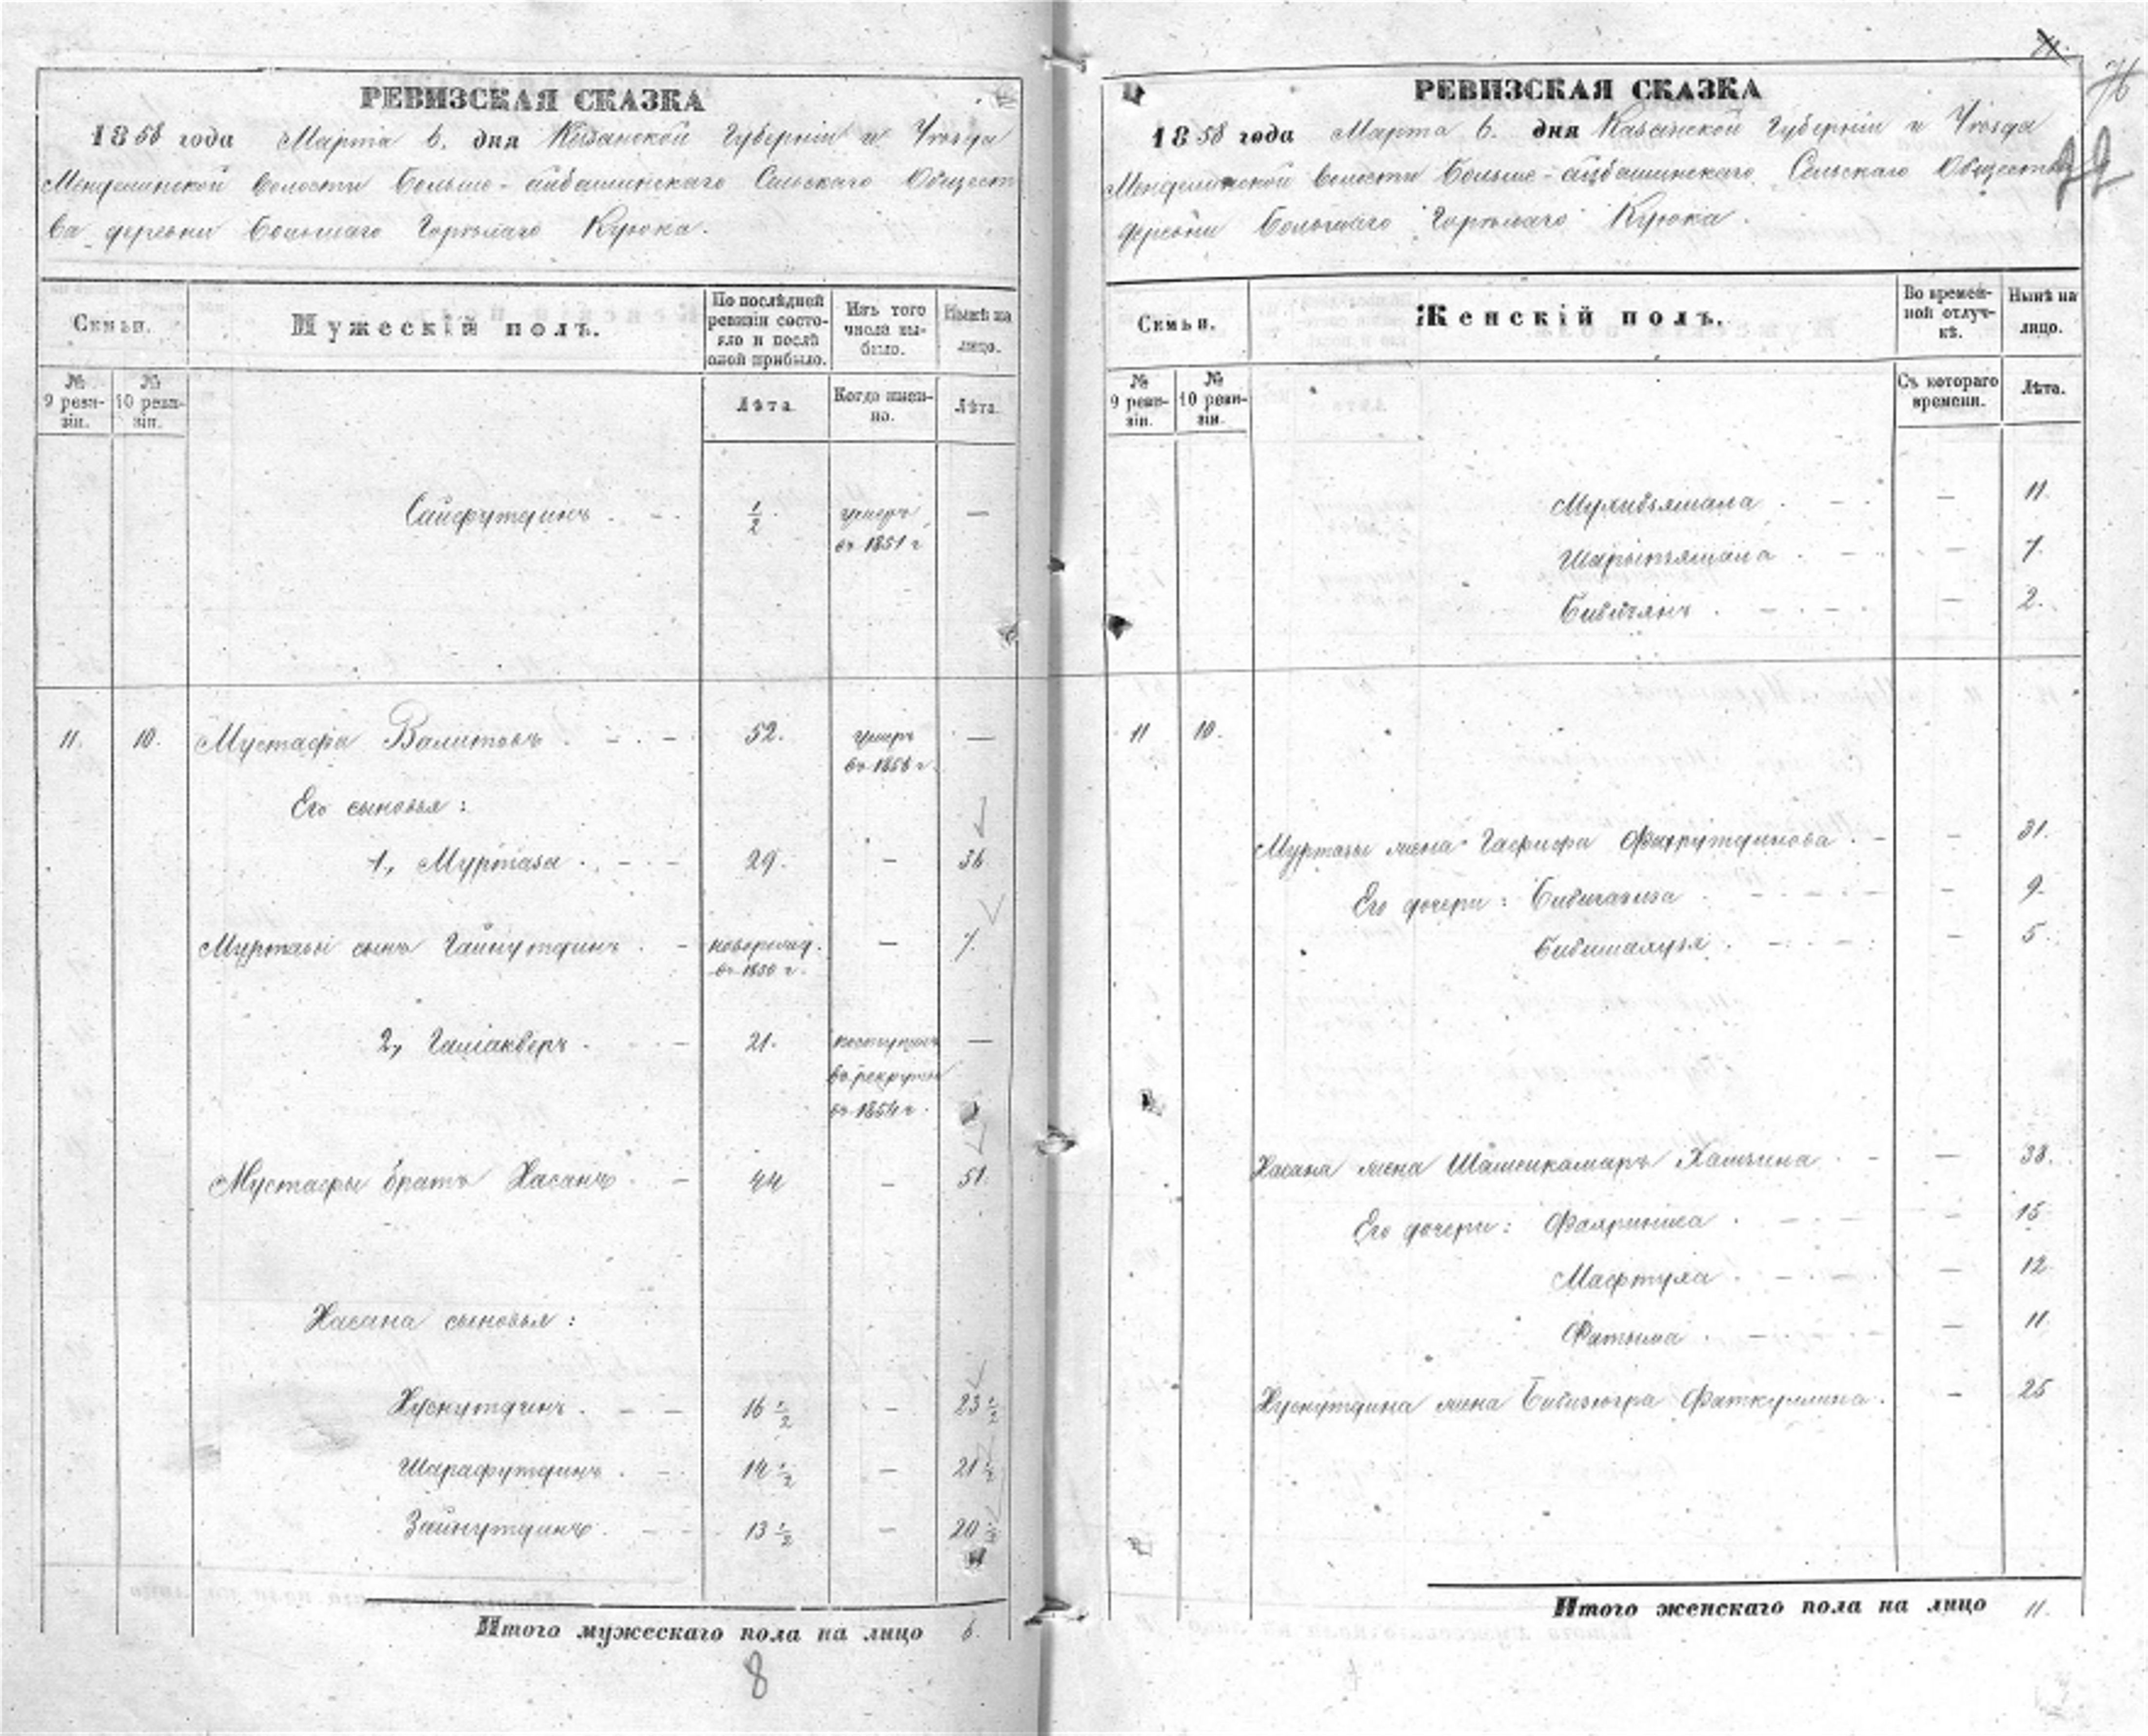 РЕВИЗСКАЯ СКАЗКА
1858 года Марта 6. дня Казанской Губернiи и Уѣзда
Менделинской волости Больше-айбашинскаго Сельскаго Общест
ва деревни Большаго Горѣлаго Куюка.
Семьи.
Мужескiй полъ.
По послѣдней ревизiи состояло и послѣ оной прибыло.
Изъ того числа выбыло.
Нынѣ на лицо.
№ 9 ревизiи.
№ 10 ревизiи.
Лѣта.
Когда именно.
Лѣта.
Сайфутдинъ . - - 1/2 . умеръ въ 1851 г —
11. 10. Мустафа Валитовъ . - . - 52. умеръ въ 1856 г. —
Его сыновья :
1, Муртаза . - - 29. - 36
Муртазы сынъ Гайнутдинъ . - новорожд. въ 1850 г. — 7.
2, Галiакберъ . - 21. поступилъ въ рекруты въ 1854 г. —
Мустафы братъ Хасанъ . - 44 - 51.
Хасана сыновья :
Хуснутдинъ . - - 16 1/2 - 23 1/2
Шарафутдинъ . - 14 1/2 - 21 1/2
Зайнутдинъ . - - 13 1/2 - 20 1/2
Итого мужескаго пола на лицо 6.
8
76
72
РЕВИЗСКАЯ СКАЗКА
1858 года Марта 6. дня Казанской Губернiи и Уѣзда
Менделинской волости Больше-айбашинскаго Сельскаго Общества
деревни Большаго Горѣлаго Куюка.
Семьи.
Женскiй полъ.
Во временной отлучкѣ.
Нынѣ на лицо.
№ 9 ревизiи.
№ 10 ревизiи.
Съ котораго времени.
Лѣта.
— 11.
— 7.
Бибиянъ . - . - — 2.
11 10.
Муртазы жена Гафифа Фахрутдинова . - — 31.
Его дочери : - 9.
- 5.
Хасана жена Шамсикамаръ . - — 38.
Его дочери : - 15
Мафтуха . - . - — 12
Фатыма . - . - — 11
Хуснутдина жена Бибизюгра Фаткуллина . - 25
Итого женскаго пола на лицо 11.